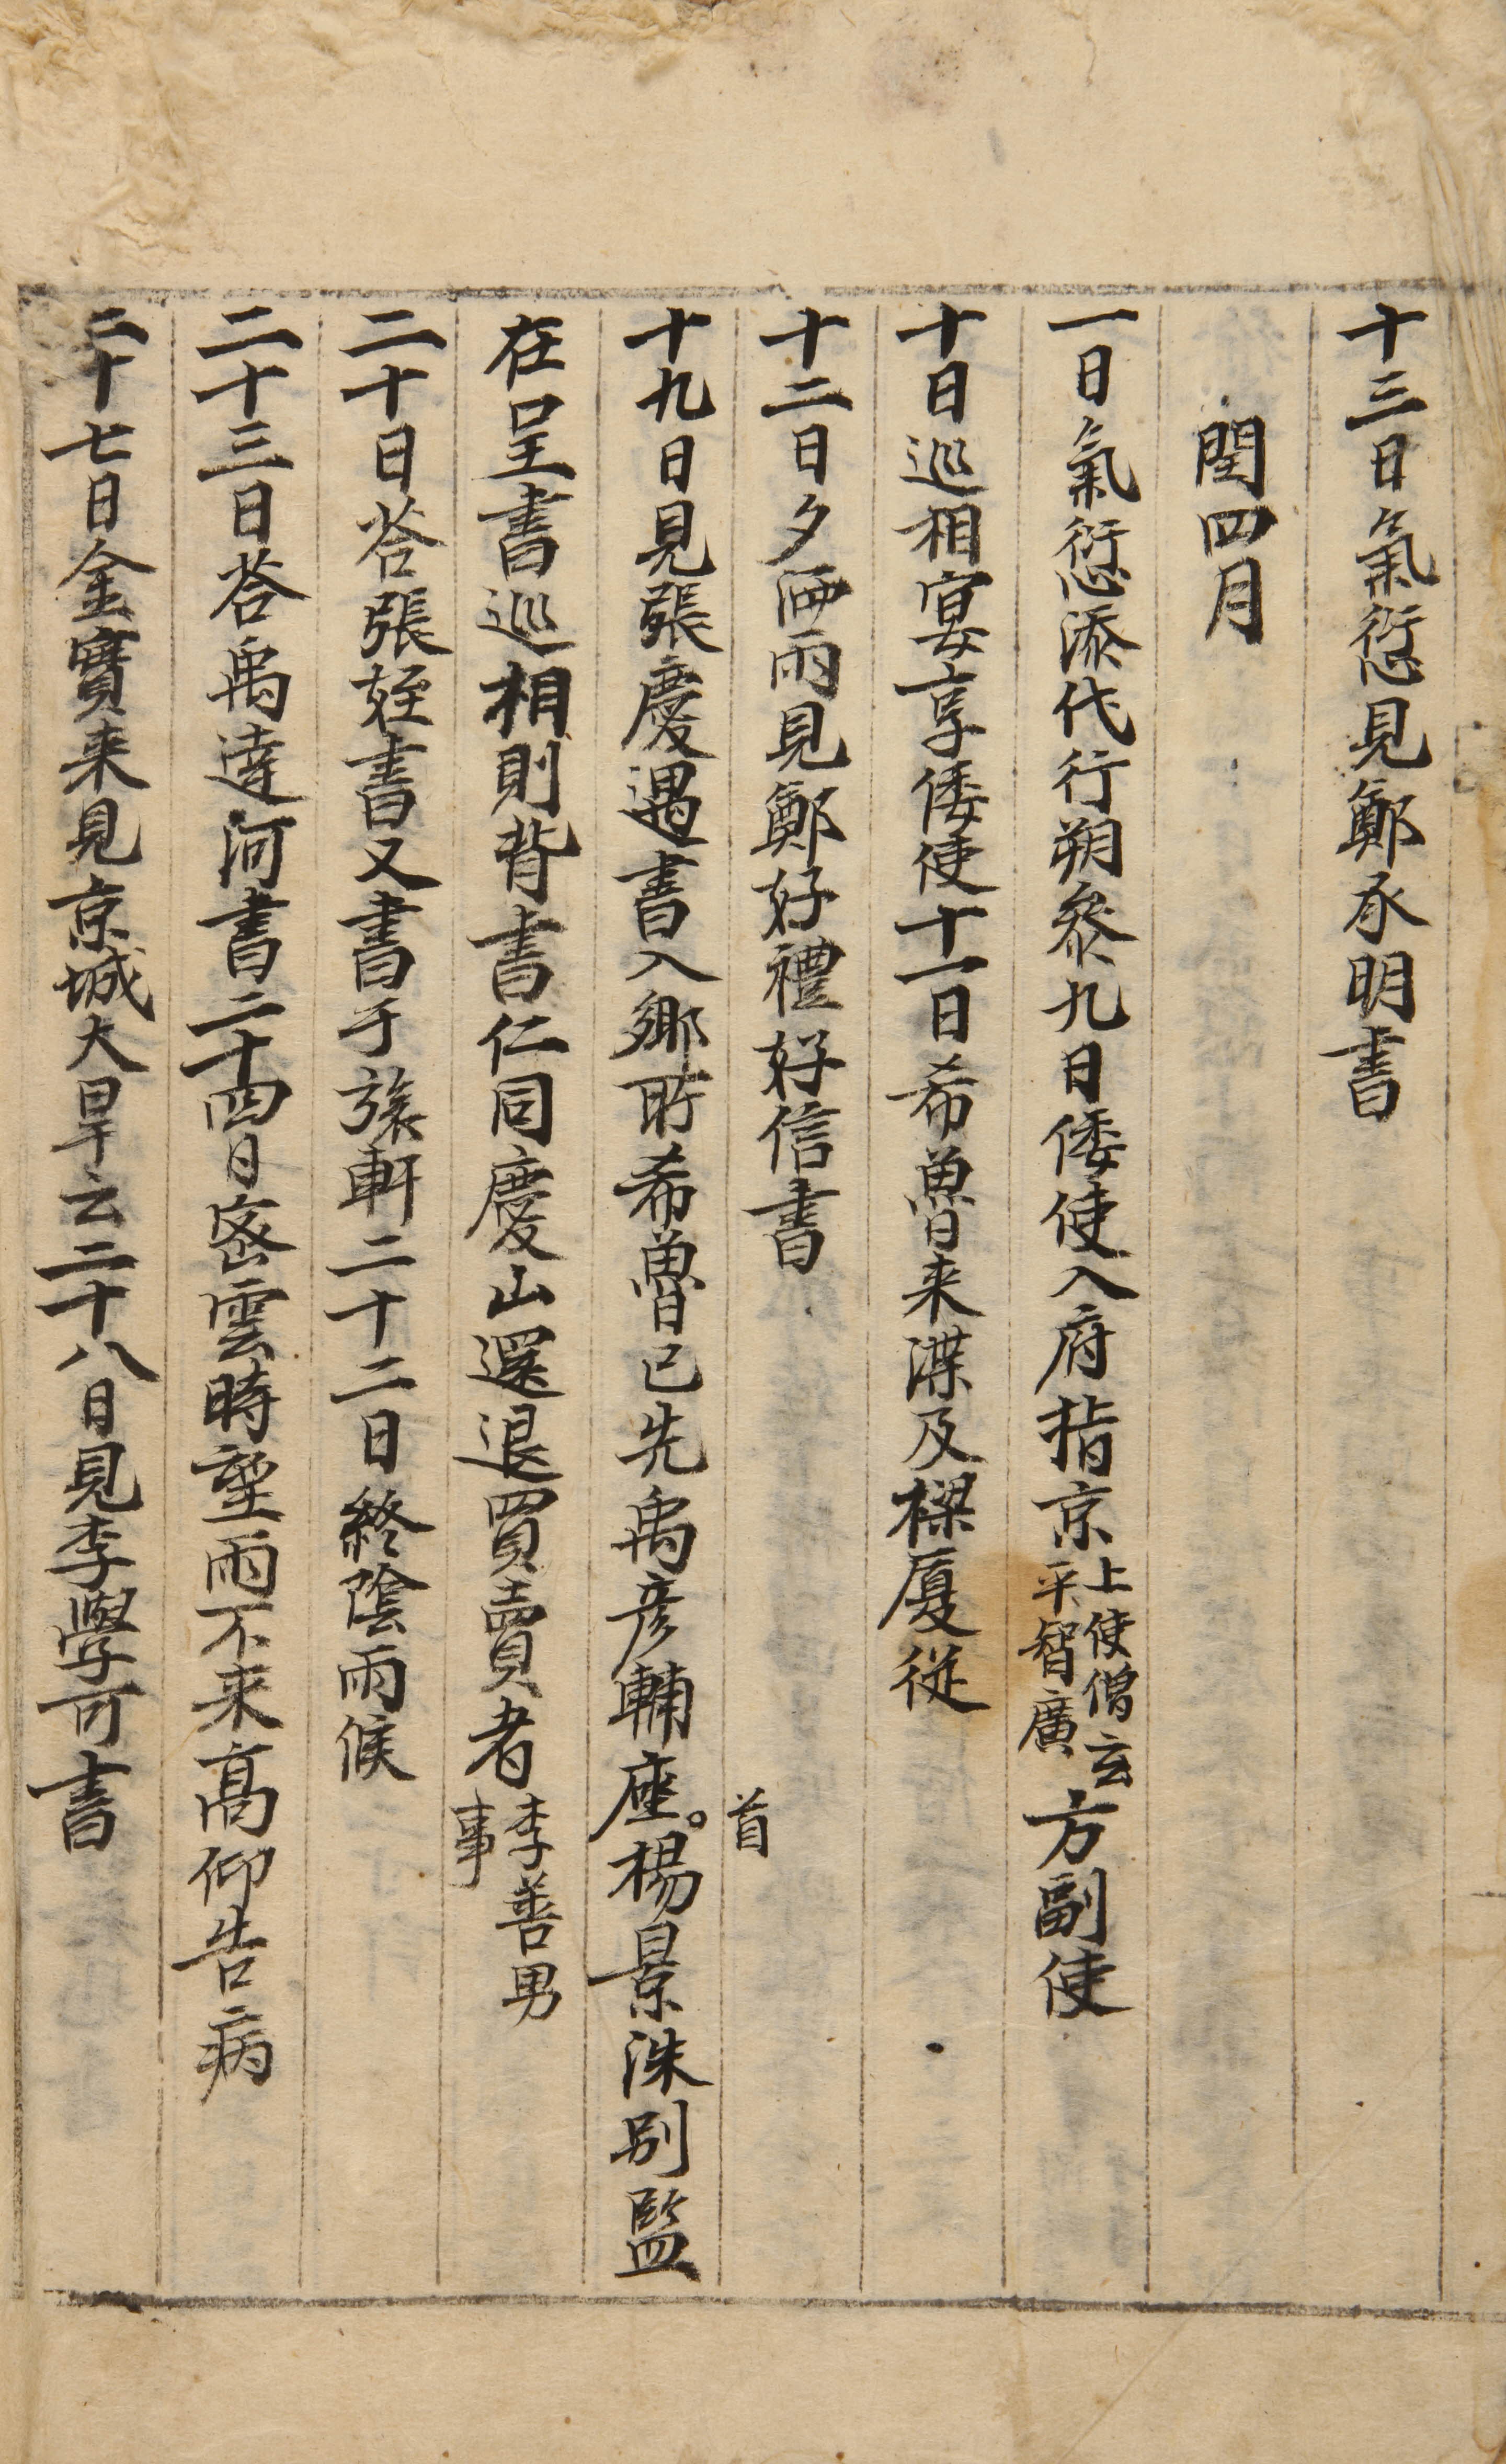 十三日氣愆見鄭承明書
閏四月
一日氣愆添代行朔參九日倭使入府指京上使僧玄平智廣方副使
十日巡相宴享倭使十一日希魯来渫及樑厦從
十二日夕洒雨見鄭好禮好信書
十九日見張慶遇書入鄉所希魯已先禹彦輔座首楊景洙別監
在呈書巡相則背書仁同慶山還退買賣者李善男事
二十日荅張姪書又書于旅軒二十二日終陰雨候
二十三日荅禹達河書二十四日密雲時望雨不来高仰告病
二十七日金寶来見京城大旱云二十八日見李學可書